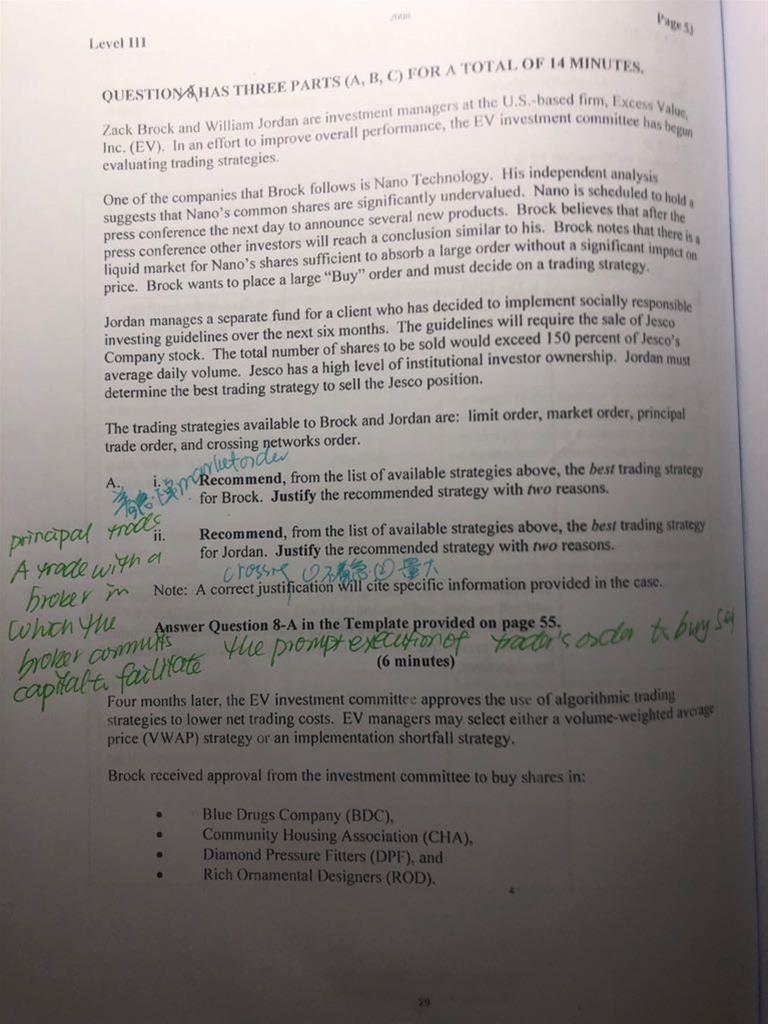 2008
Page 53
Level III
QUESTION 8 HAS THREE PARTS (A, B, C) FOR A TOTAL OF 14 MINUTES.
Zack Brock and William Jordan are investment managers at the U.S.-based firm, Excess Value,
Inc. (EV). In an effort to improve overall performance, the EV investment committee has begun
evaluating trading strategies.
One of the companies that Brock follows is Nano Technology. His independent analysis
suggests that Nano's common shares are significantly undervalued. Nano is scheduled to hold a
press conference the next day to announce several new products. Brock believes that after the
press conference other investors will reach a conclusion similar to his. Brock notes that there is a
liquid market for Nano's shares sufficient to absorb a large order without a significant impact on
price. Brock wants to place a large "Buy" order and must decide on a trading strategy.
Jordan manages a separate fund for a client who has decided to implement socially responsible
investing guidelines over the next six months. The guidelines will require the sale of Jesco
Company stock. The total number of shares to be sold would exceed 150 percent of Jesco's
average daily volume. Jesco has a high level of institutional investor ownership. Jordan must
determine the best trading strategy to sell the Jesco position.
The trading strategies available to Brock and Jordan are: limit order, market order, principal
trade order, and crossing networks order.
着急 market order
A. i. Recommend, from the list of available strategies above, the best trading strategy
for Brock. Justify the recommended strategy with two reasons.
principal trade
ii. Recommend, from the list of available strategies above, the best trading strategy
for Jordan. Justify the recommended strategy with two reasons.
A trade with a
crossing ①不着急 ②量大
broker in
Note: A correct justification will cite specific information provided in the case.
which the
Answer Question 8-A in the Template provided on page 55.
broker commits
capital to facilitate the prompt execution of trader's order to buy sell
(6 minutes)
Four months later, the EV investment committee approves the use of algorithmic trading
strategies to lower net trading costs. EV managers may select either a volume-weighted average
price (VWAP) strategy or an implementation shortfall strategy.
Brock received approval from the investment committee to buy shares in:
• Blue Drugs Company (BDC),
• Community Housing Association (CHA),
• Diamond Pressure Fitters (DPF), and
• Rich Ornamental Designers (ROD).
29